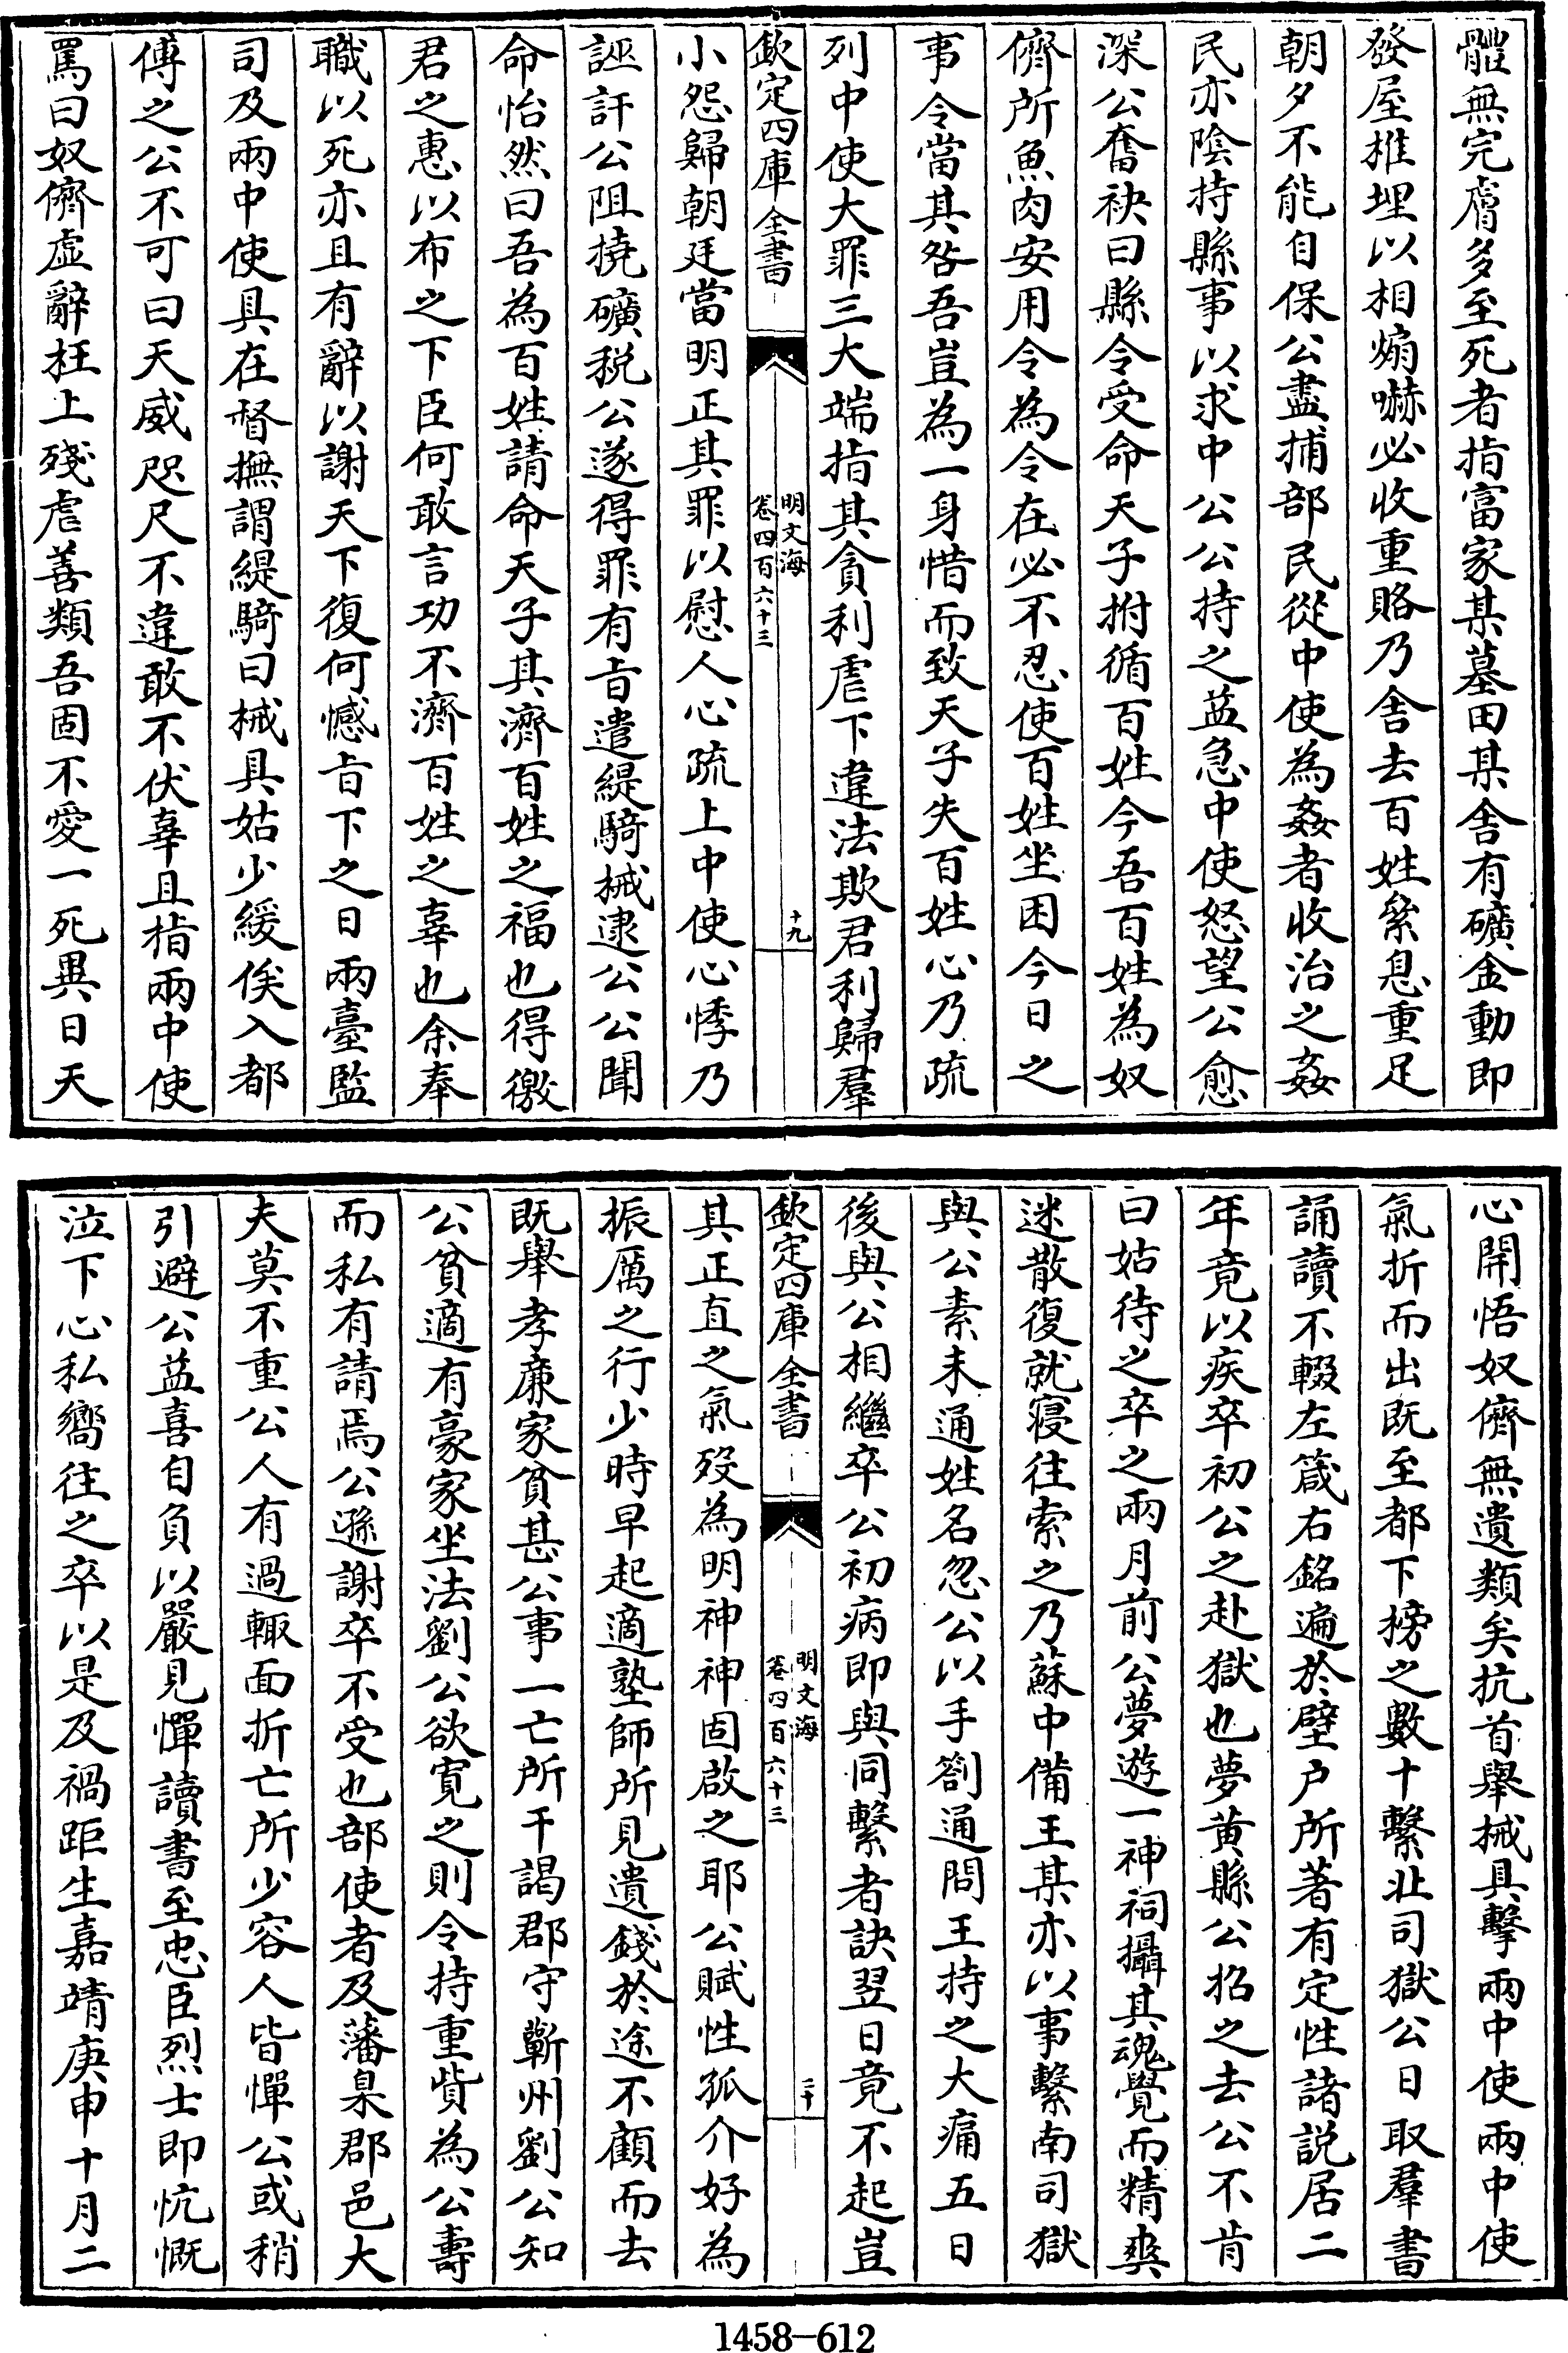 體無完膚多至死者指富家某墓田某舍有礦金動即
發屋椎埋以相煽嚇必收重賂乃舍去百姓絫息重足
朝夕不能自保公盡捕部民從中使為姦者收治之姦
民亦陰持縣事以求中公公持之益急中使怒望公愈
深公奮袂曰縣令受命天子拊循百姓今吾百姓為奴
儕所魚肉安用令為令在必不忍使百姓坐困今日之
事令當其咎吾豈為一身惜而致天子失百姓心乃疏
列中使大罪三大端指其貪利虐下違法欺君利歸羣
欽定四庫全書
明文海
卷四百六十三
十九
小怨歸朝廷當明正其罪以慰人心疏上中使心悸乃
誣訐公阻撓礦税公遂得罪有㫖遣緹騎械逮公公聞
命怡然曰吾為百姓請命天子其濟百姓之福也得徼
君之惠以布之下臣何敢言功不濟百姓之辜也余奉
職以死亦且有辭以謝天下復何憾㫖下之日兩臺監
司及兩中使具在督撫謂緹騎曰械具姑少緩俟入都
傅之公不可曰天威咫尺不違敢不伏辜且指兩中使
罵曰奴儕虛辭枉上殘虐善類吾固不愛一死異日天
心開悟奴儕無遺類矣抗首舉械具擊兩中使兩中使
氣折而出既至都下榜之數十繫北司獄公日取羣書
誦讀不輟左箴右銘遍於壁户所著有定性諸説居二
年竟以疾卒初公之赴獄也夢黄縣公招之去公不肯
曰姑待之卒之兩月前公夢遊一神祠攝其魂覺而精爽
迷散復就寢往索之乃蘇中備王某亦以事繫南司獄
與公素未通姓名忽公以手劄通問王持之大痛五日
後與公相繼卒公初病即與同繫者訣翌日竟不起豈
欽定四庫全書
明文海
卷四百六十三
二十
其正直之氣歿為明神神固啟之耶公賦性狐介好為
振厲之行少時早起適塾師所見遺錢於途不顧而去
既舉孝廉家貧甚公事一亡所干謁郡守蘄州劉公知
公貧適有豪家坐法劉公欲寛之則令持重貲為公壽
而私有請焉公遜謝卒不受也部使者及藩臬郡邑大
夫莫不重公人有過輒面折亡所少容人皆憚公或稍
引避公益喜自負以嚴見憚讀書至忠臣烈士即忼慨
泣下心私嚮往之卒以是及禍距生嘉靖庚申十月二
1458-612